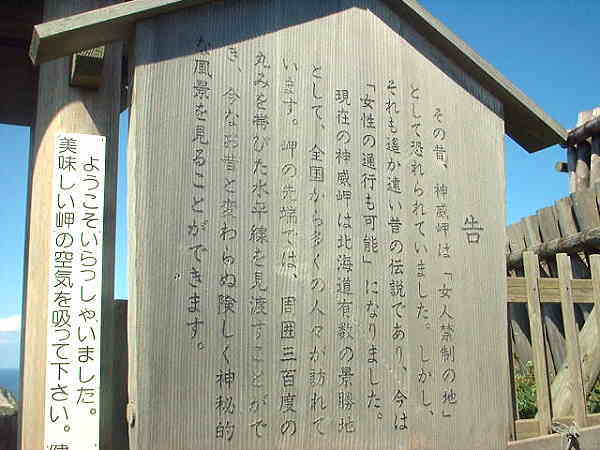 告
その昔、神威岬は「女人禁制の地」
として恐れられていました。しかし、
それも遥か遠い昔の伝説であり、今は
「女性の通行も可能」になりました。
現在の神威岬は北海道有数の景勝地
として、全国から多くの人々が訪れて
います。岬の先端では、周囲三百度の
丸みを帯びた水平線を見渡すことがで
き、今なお昔と変わらぬ険しく神秘的
な風景を見ることができます。
ようこそいらっしゃいました。
美味しい岬の空気を吸って下さい。